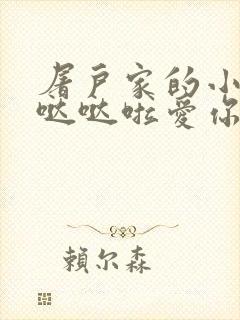 屠户家的小
哒哒啦爱你
賴尔森